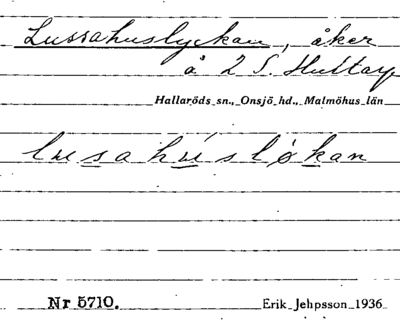 Lussahuslyckan, åker
å 2 S. Hultarp
Hallaröds sn., Onsjö hd., Malmöhus län
lusahúsløkan
Nr 5710.
Erik Jehpsson 1936